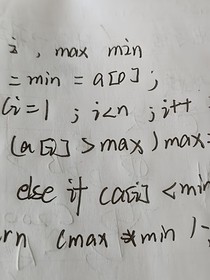 i, max min
= min = a[0];
(i=1 ; i<n ; i++
(a[i] > max) max=
else if (a[i] < min
rn (max * min) -